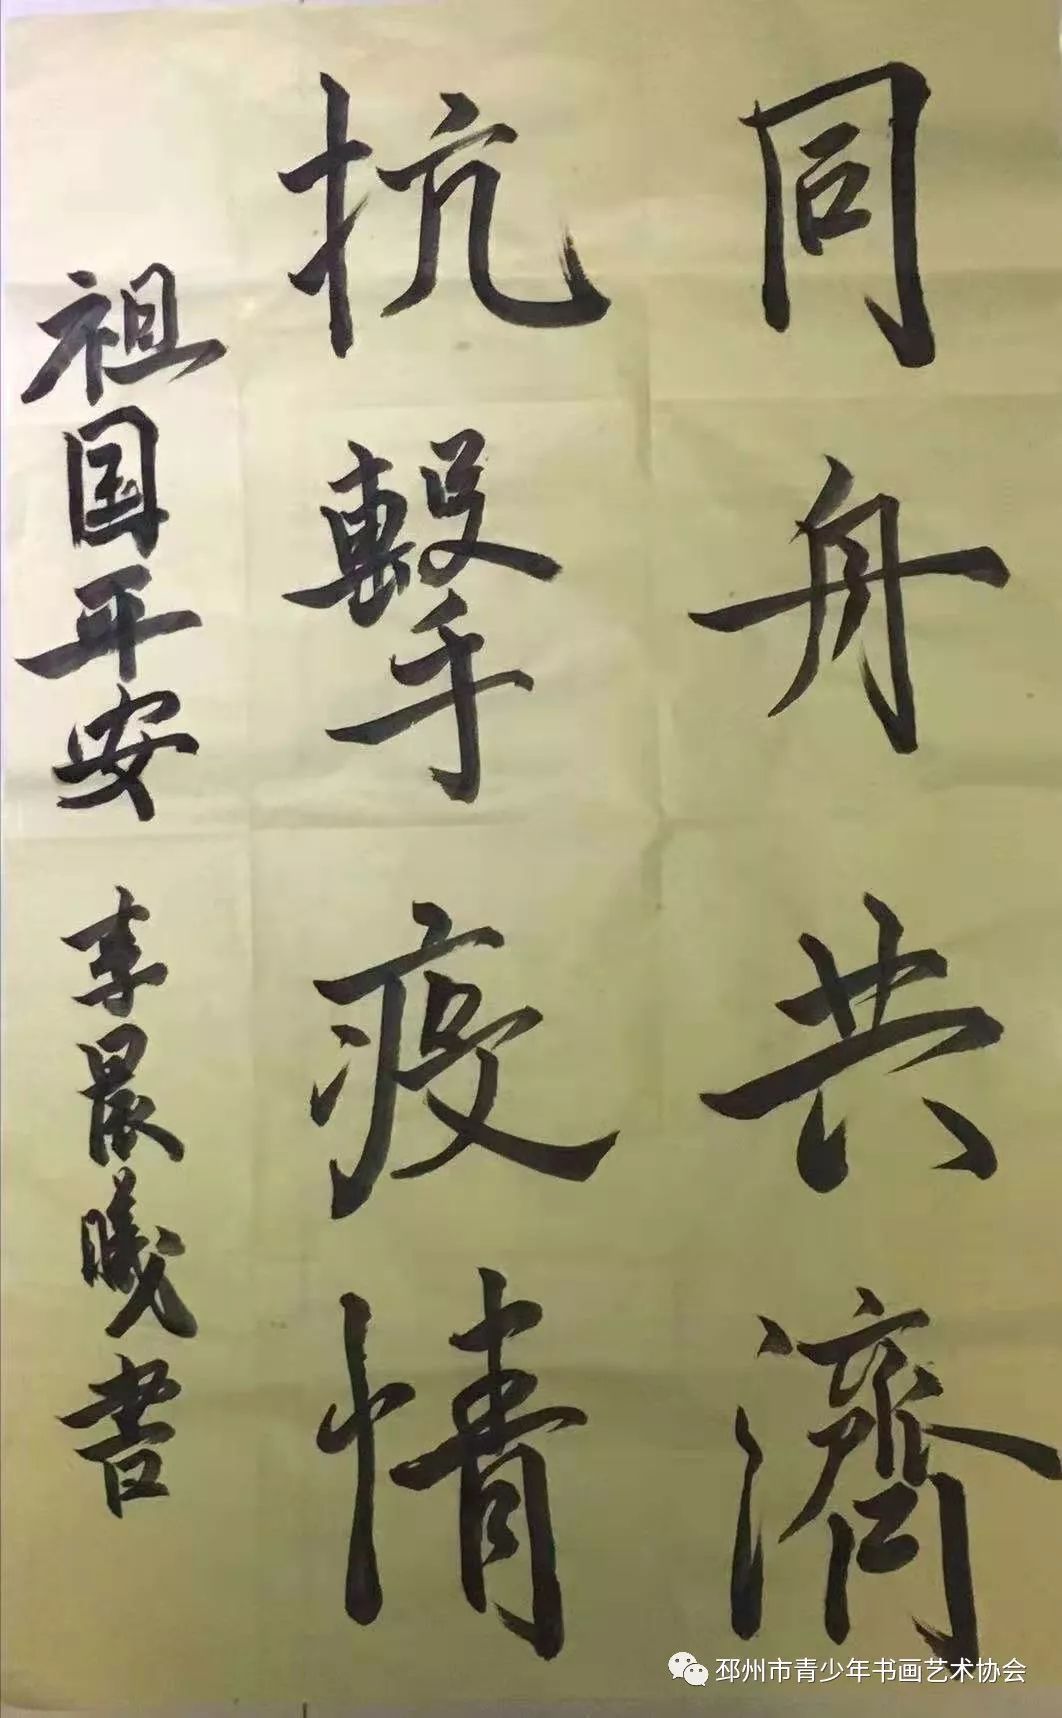 同舟共濟
抗擊疫情
祖国平安 李晨曦书
邳州市青少年书画艺术协会